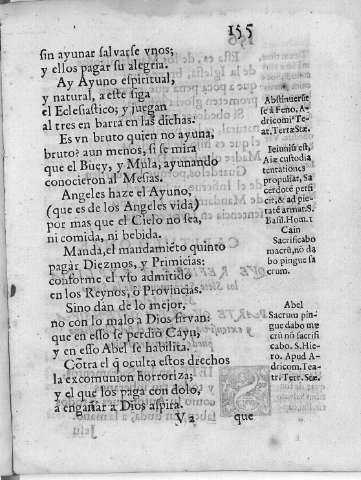 155
sin ayunar salvarse vnos;
y ellos pagar su alegria.
Ay Ayuno espiritual,
y natural, a este siga
el Eclesiastico; y juegan
al tres en barra en las dichas.
Es vn bruto quien no ayuna,
bruto? aun menos, si se mira
que el Buey, y Mula, ayunando
conocieron al Mesias.
Angeles haze el Ayuno,
(que es de los Angeles vida)
por mas que el Cielo no sea,
ni comida, ni bebida.
Manda, el mandamiẽto quinto
pagar Diezmos, y Primicias:
conforme el vso admitido
en los Reynos, o Provincias.
Sino dàn de lo mejor,
no con lo malo a Dios sirvan:
que en esso se perdiò Cayn,
y en esso Abel se habilita.
Cõtra el q̃ oculta estos drechos
la excomunion horroriza;
y el que los paga con dolo,
a engañar a Dios aspira.
V 2 que
Abstinuerūt
se á Feno, A-
dricomi⁹ Te-
at. Terræ Sæ.
Ieiuniũ est,
Aiæ custodia
tentationes
propulsat, Sa
cerdotẽ perfi
cit, & ad pie-
tatẽ armat. S.
Basil. Hom. 1
Cain
Sacrificabo
macrū, nõ da
bo pingue sa
crum.
Abel
Sacrum pin-
gue dabo ma
crũ nõ sacrifi
cabo. S. Hie-
ro. Apud A-
dricom. Tea-
tri Terr. Sæ.